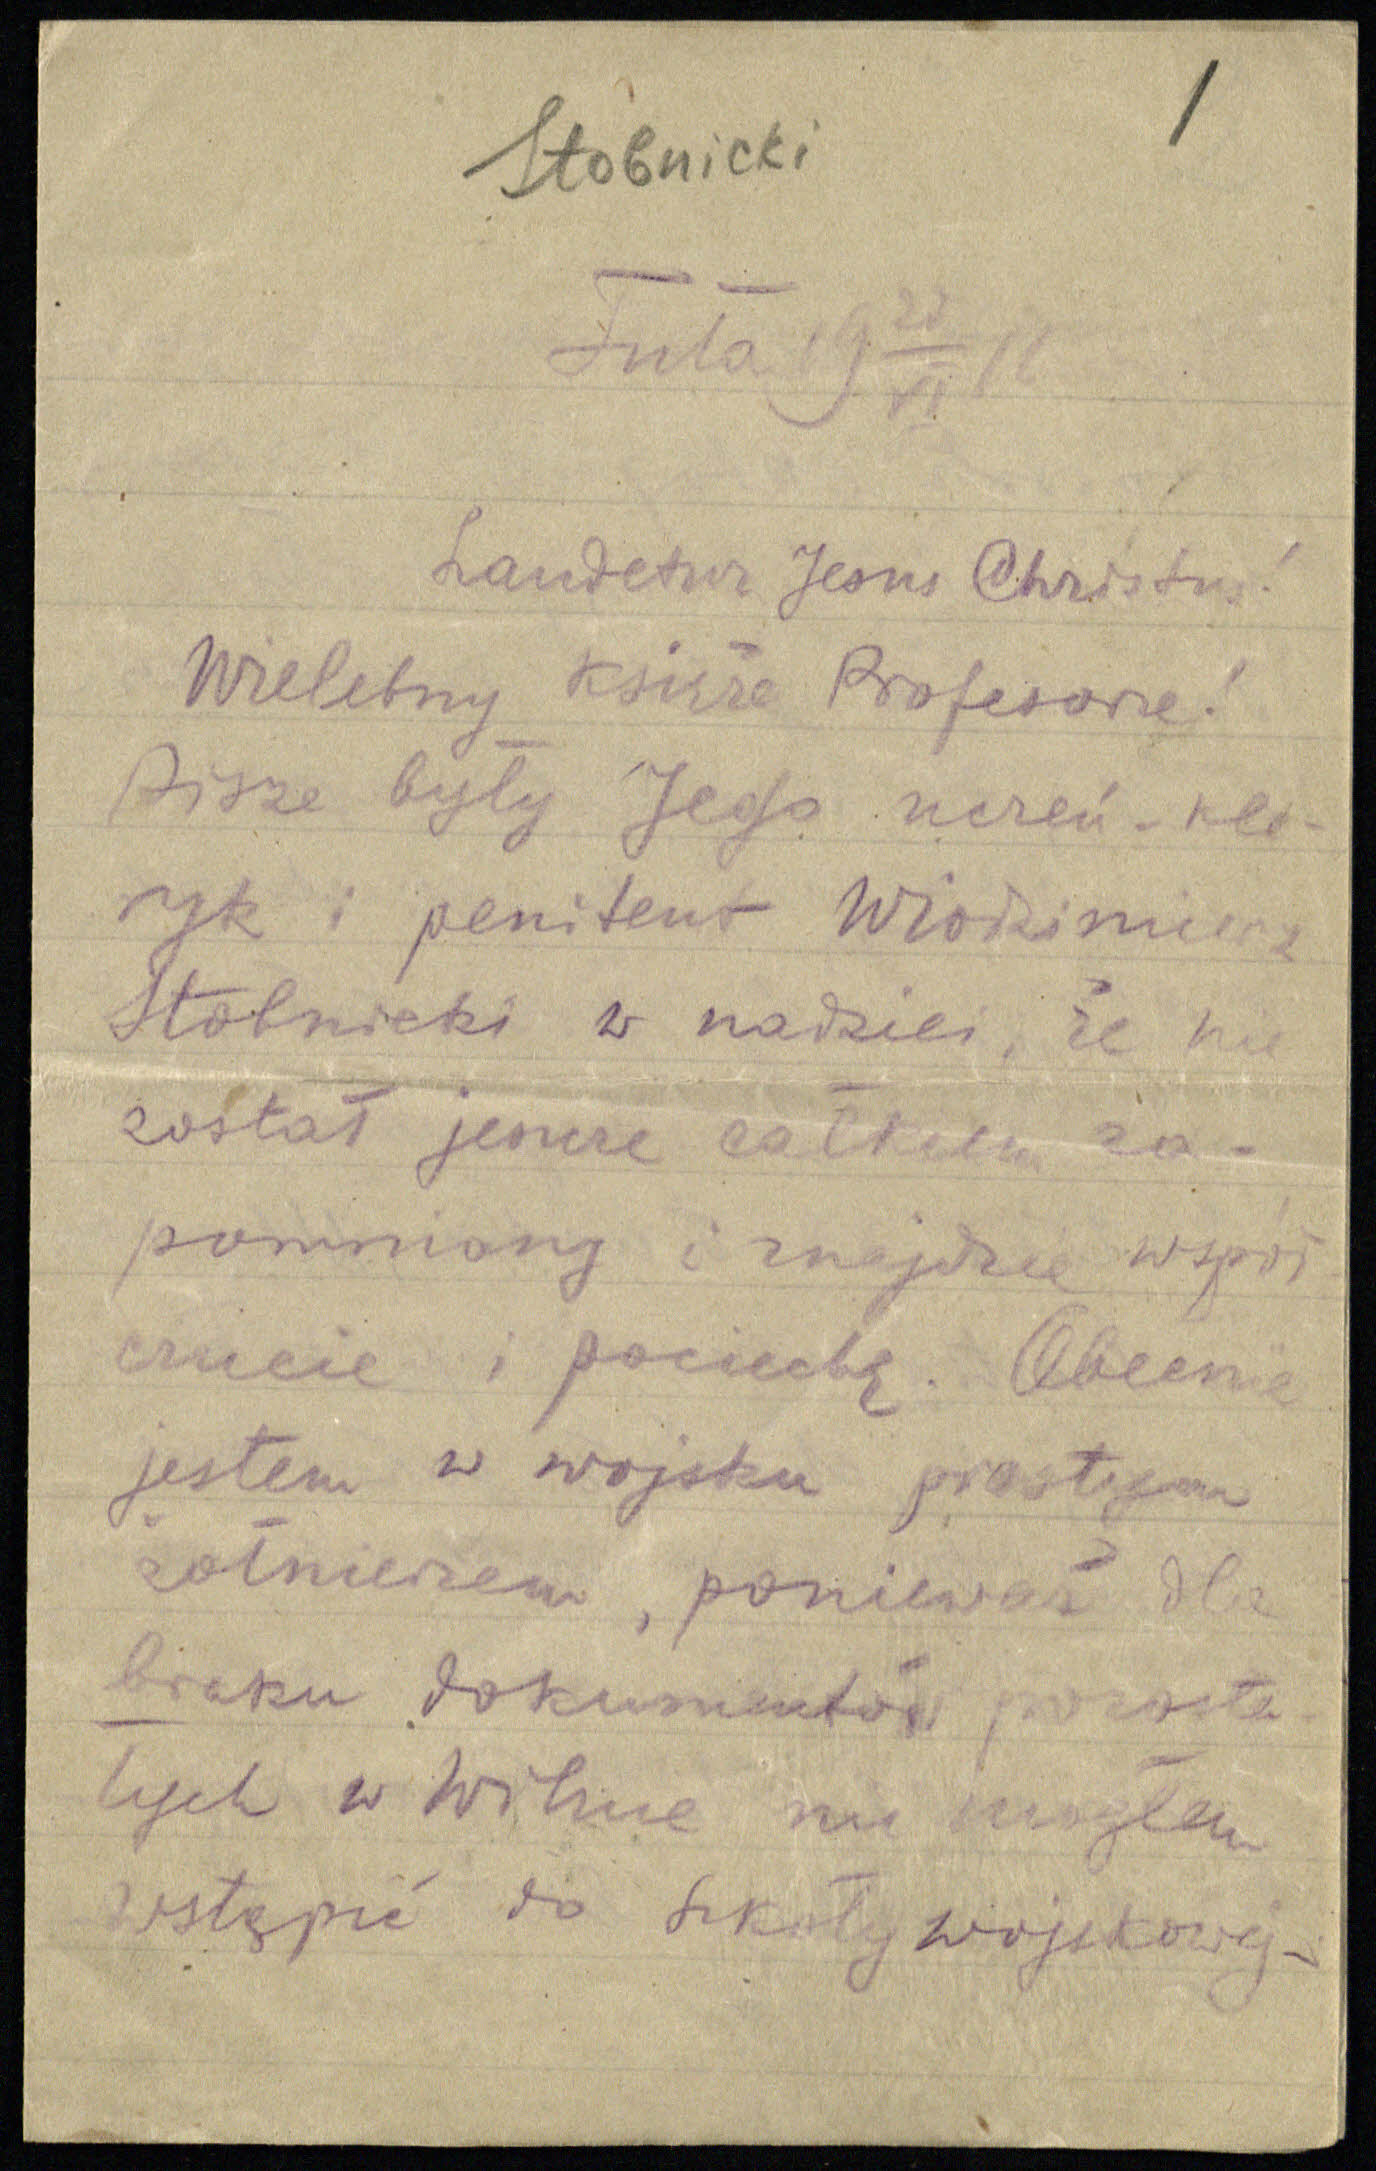 Stobnicki
1
Tuła 19 XI
Laudetur Jesus Christus!
Wielebny księże Profesorze!
Pisze były Jego uczeń-kle-
ryk i penitent Włodzimierz
Stobnicki w nadziei, że nie
został jeszcze całkiem za-
pomniany i znajdzie współ
czucie i pociechę. Obecnie
jestem w wojsku prostym
żołnierzem, ponieważ dla
braku dokumentów pozosta-
łych w Wilnie nie mogłem
wstąpić do szkoły wojskowej-